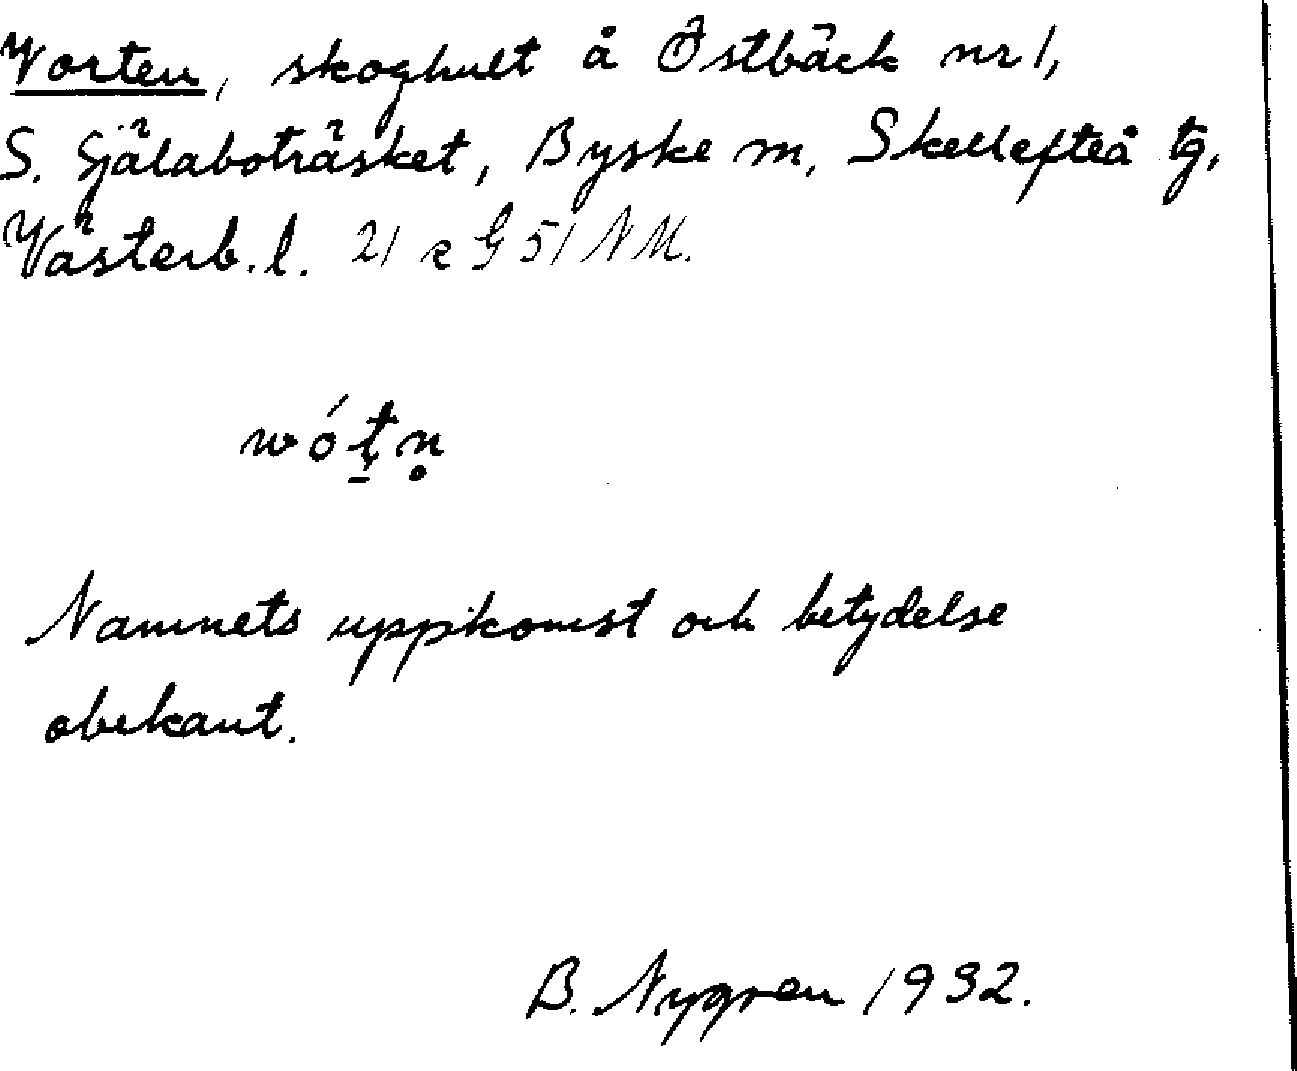 Vorten, skoghult å Östbäck nr 1,
S. Själaboträsket, Byske sn, Skellefteå tg,
Västerb. l. 21 e G 51 N M.
wótn
Namnets uppkomst och betydelse
obekant.
B. Nygren 1932.